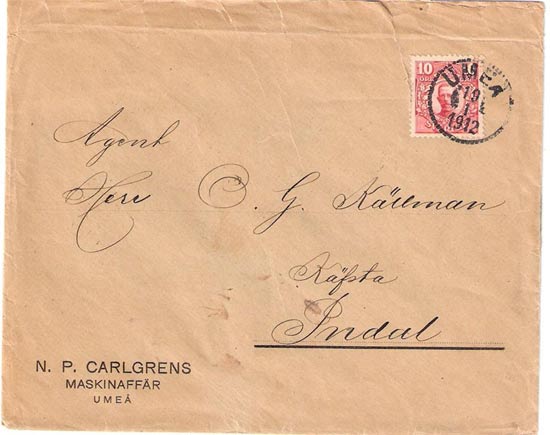 10
ÖRE
UMEÅ
19
1
1912
Agent
Herr C. G. Källman
Käfsta
Indal
N. P. CARLGRENS
MASKINAFFÄR
UMEÅ